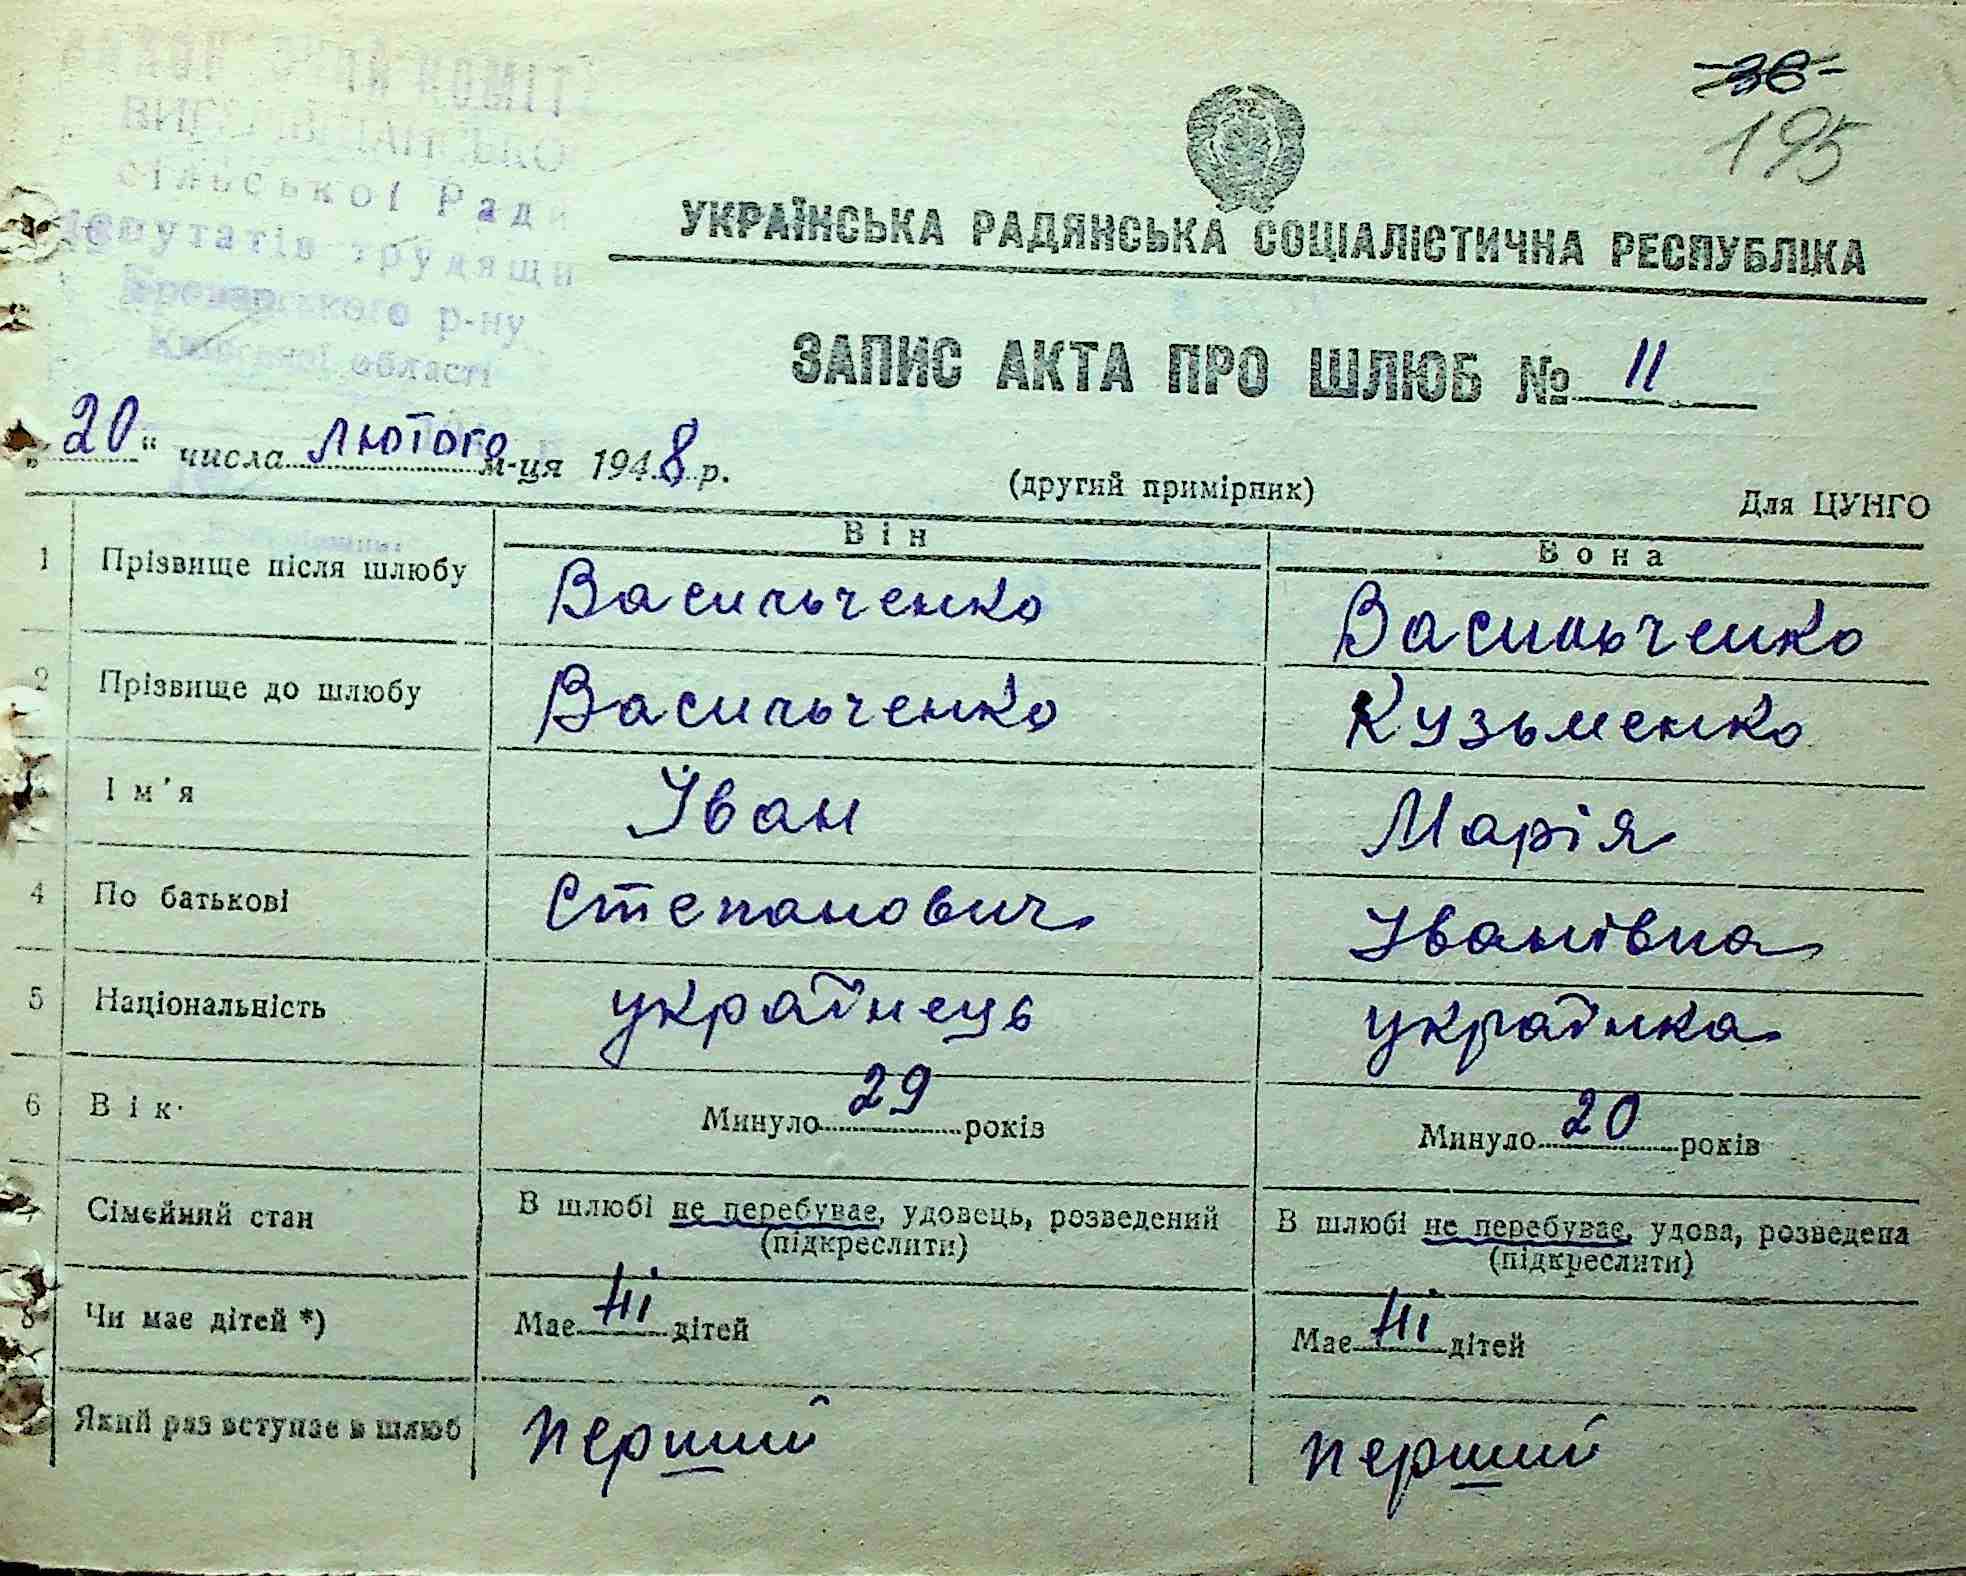 36
195
сільської Рад
депутатів трудящи
Броварського р-ну
Київської області
УКРАЇНСЬКА РАДЯНСЬКА СОЦІАЛІСТИЧНА РЕСПУБЛІКА
ЗАПИС АКТА ПРО ШЛЮБ № 11
„20“ числа лютого м-ця 1948 р.
(другий примірник)
Для ЦУНГО
Він
Вона
1 Прізвище після шлюбу Васильченко Васильченко
2 Прізвище до шлюбу Васильченко Кузьменко
Ім'я Їван Марія
4 По батькові Степанович Іванівна
5 Національність українець українка
6 Вік Минуло 29 років Минуло 20 років
7 Сімейний стан В шлюбі не перебуває, удовець, розведений В шлюбі не перебуває, удова, розведена
(підкреслити) (підкреслити)
8 Чи має дітей *) Має ні дітей Має ні дітей
Який раз вступає в шлюб перший перший